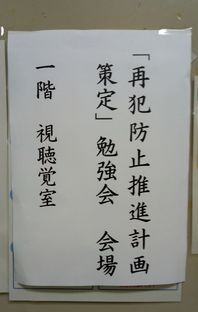 「再犯防止推進計画
策定」勉強会　会場
一階　視聴覚室